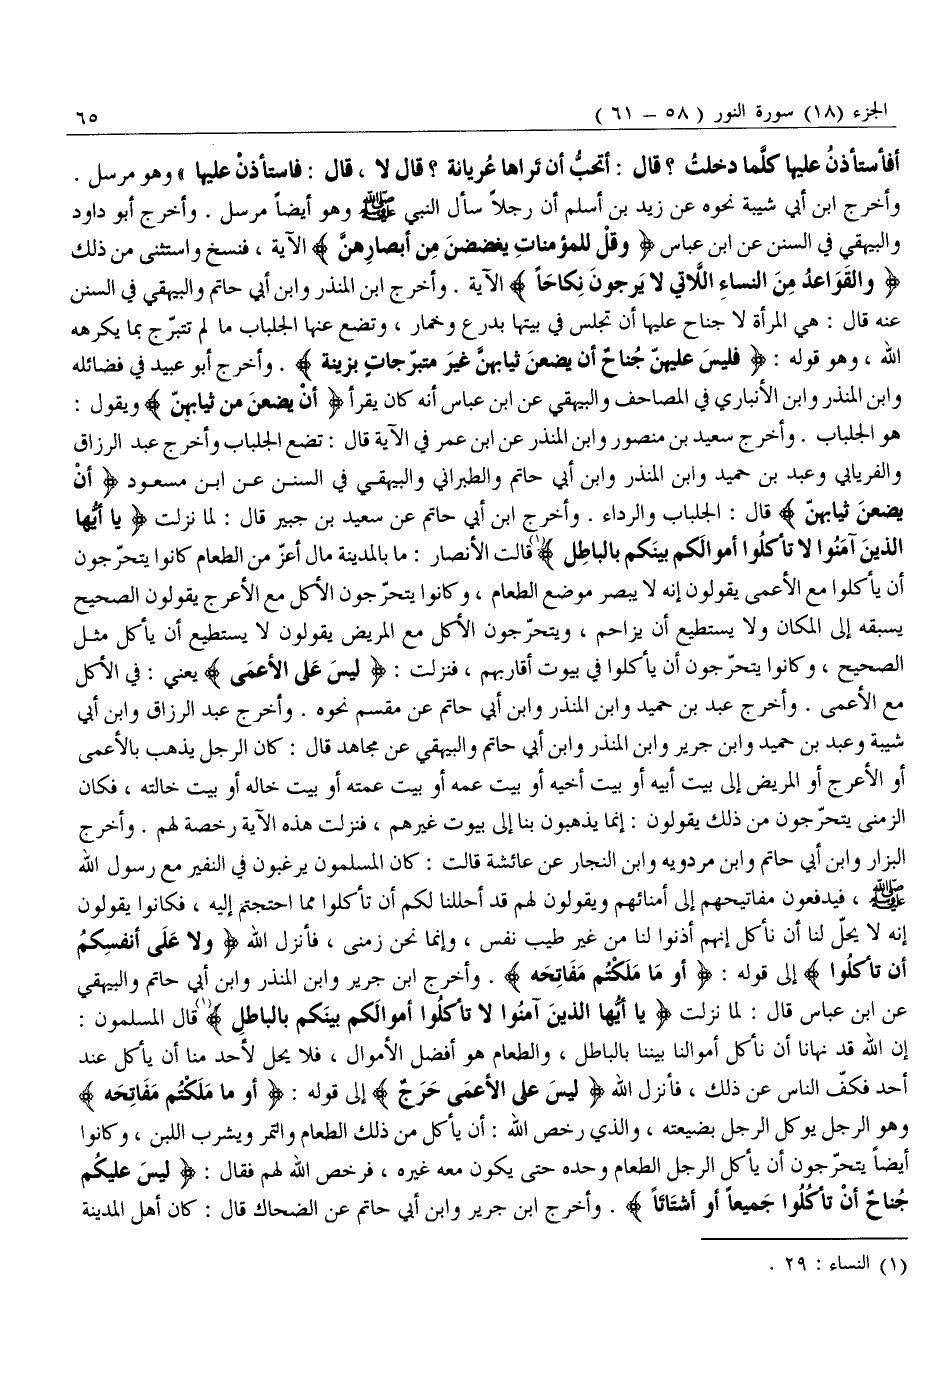 الجزء (١٨) سورة النور ( ٥٨ – ٦١ ) ٦٥
أفأستأذنُ عليها كلَّما دخلتُ ؟ قال : أتحبُّ أن تراها عُريانة ؟ قال لا ، قال : فاستأذنْ عليها » وهو مرسل .
وأخرج ابن أبي شيبة نحوه عن زيد بن أسلم أن رجلاً سأل النبي ﷺ وهو أيضاً مرسل . وأخرج أبو داود
والبيهقي في السنن عن ابن عباس ﴿ وقلْ للمؤمناتِ يغضضنَ مِن أبصارِهنَّ ﴾ الآية ، فنسخ واستثنى من ذلك
﴿ والقَوَاعدُ مِنَ النساءِ اللَّاتي لا يَرجونَ نِكاحَاً ﴾ الآية . وأخرج ابن المنذر وابن أبي حاتم والبيهقي في السنن
عنه قال : هي المرأة لا جناح عليها أن تجلس في بيتها بدرع وخمار ، وتضع عنها الجلباب ما لم تتبرّج بما يكرهه
الله ، وهو قوله : ﴿ فليسَ عليهنّ جُناحٌ أن يضعنَ ثيابهنَّ غيرَ متبرّجاتٍ بزينة ﴾ . وأخرج أبو عبيد في فضائله
وابن المنذر وابن الأنباري في المصاحف والبيهقي عن ابن عباس أنه كان يقرأ ﴿ أنْ يضعنَ من ثيابهنّ ﴾ ويقول :
هو الجلباب . وأخرج سعيد بن منصور وابن المنذر عن ابن عمر في الآية قال : تضع الجلباب وأخرج عبد الرزاق
والفريابي وعبد بن حميد وابن المنذر وابن أبي حاتم والطبراني والبيهقي في السنن عن ابن مسعود ﴿ أنْ
يضعنَ ثيابهنّ ﴾ قال : الجلباب والرداء . وأخرج ابن أبي حاتم عن سعيد بن جبير قال : لما نزلت ﴿ يا أيُّها
الذينَ آمَنُوا لا تأكلُوا أموالَكم بينَكم بالباطِل ﴾(١) قالت الأنصار : ما بالمدينة مال أعزّ من الطعام كانوا يتحرّجون
أن يأكلوا مع الأعمى يقولون إنه لا يبصر موضع الطعام ، وكانوا يتحرّجون الأكل مع الأعرج يقولون الصحيح
يسبقه إلى المكان ولا يستطيع أن يزاحم ، ويتحرّجون الأكل مع المريض يقولون لا يستطيع أن يأكل مثل
الصحيح ، وكانوا يتحرّجون أن يأكلوا في بيوت أقاربهم ، فنزلت : ﴿ ليسَ عَلى الأعمَى ﴾ يعني : في الأكل
مع الأعمى . وأخرج عبد بن حميد وابن المنذر وابن أبي حاتم عن مقسم نحوه . وأخرج عبد الرزاق وابن أبي
شيبة وعبد بن حميد وابن جرير وابن المنذر وابن أبي حاتم والبيهقي عن مجاهد قال : كان الرجل يذهب بالأعمى
أو الأعرج أو المريض إلى بيت أبيه أو بيت أخيه أو بيت عمه أو بيت عمته أو بيت خاله أو بيت خالته ، فكان
الزمنى يتحرّجون من ذلك يقولون : إنما يذهبون بنا إلى بيوت غيرهم ، فنزلت هذه الآية رخصة لهم . وأخرج
البزار وابن أبي حاتم وابن مردويه وابن النجار عن عائشة قالت : كان المسلمون يرغبون في النفير مع رسول الله
ﷺ ، فيدفعون مفاتيحهم إلى أمنائهم ويقولون لهم قد أحللنا لكم أن تأكلوا مما احتجتم إليه ، فكانوا يقولون
إنه لا يحلّ لنا أن نأكل إنهم أذنوا لنا من غير طيب نفس ، وإنما نحن زمنى ، فأنزل الله ﴿ ولا عَلَى أنفسِكمُ
أن تأكلُوا ﴾ إلى قوله : ﴿ أو مَا مَلَكتُم مَفَاتِحَه ﴾ . وأخرج ابن جرير وابن المنذر وابن أبي حاتم والبيهقي
عن ابن عباس قال : لما نزلت ﴿ يا أيُّها الذينَ آمنُوا لا تأكلُوا أموالَكم بينَكم بالباطلِ ﴾(١) قال المسلمون :
إن الله قد نهانا أن نأكل أموالنا بيننا بالباطل ، والطعام هو أفضل الأموال ، فلا يحل لأحد منا أن يأكل عند
أحد فكفّ الناس عن ذلك ، فأنزل الله ﴿ ليسَ على الأعمَى حَرَجٌ ﴾ إلى قوله : ﴿ أو ما مَلَكتُم مَفَاتِحَه ﴾
وهو الرجل يوكل الرجل بضيعته ، والذي رخص الله : أن يأكل من ذلك الطعام والتمر ويشرب اللبن ، وكانوا
أيضاً يتحرّجون أن يأكل الرجل الطعام وحده حتى يكون معه غيره ، فرخص الله لهم فقال : ﴿ ليسَ عليكُم
جُناحٌ أنْ تأكُلُوا جَميعاً أو أشتَاتاً ﴾ . وأخرج ابن جرير وابن أبي حاتم عن الضحاك قال : كان أهل المدينة
(١) النساء : ٢٩ .